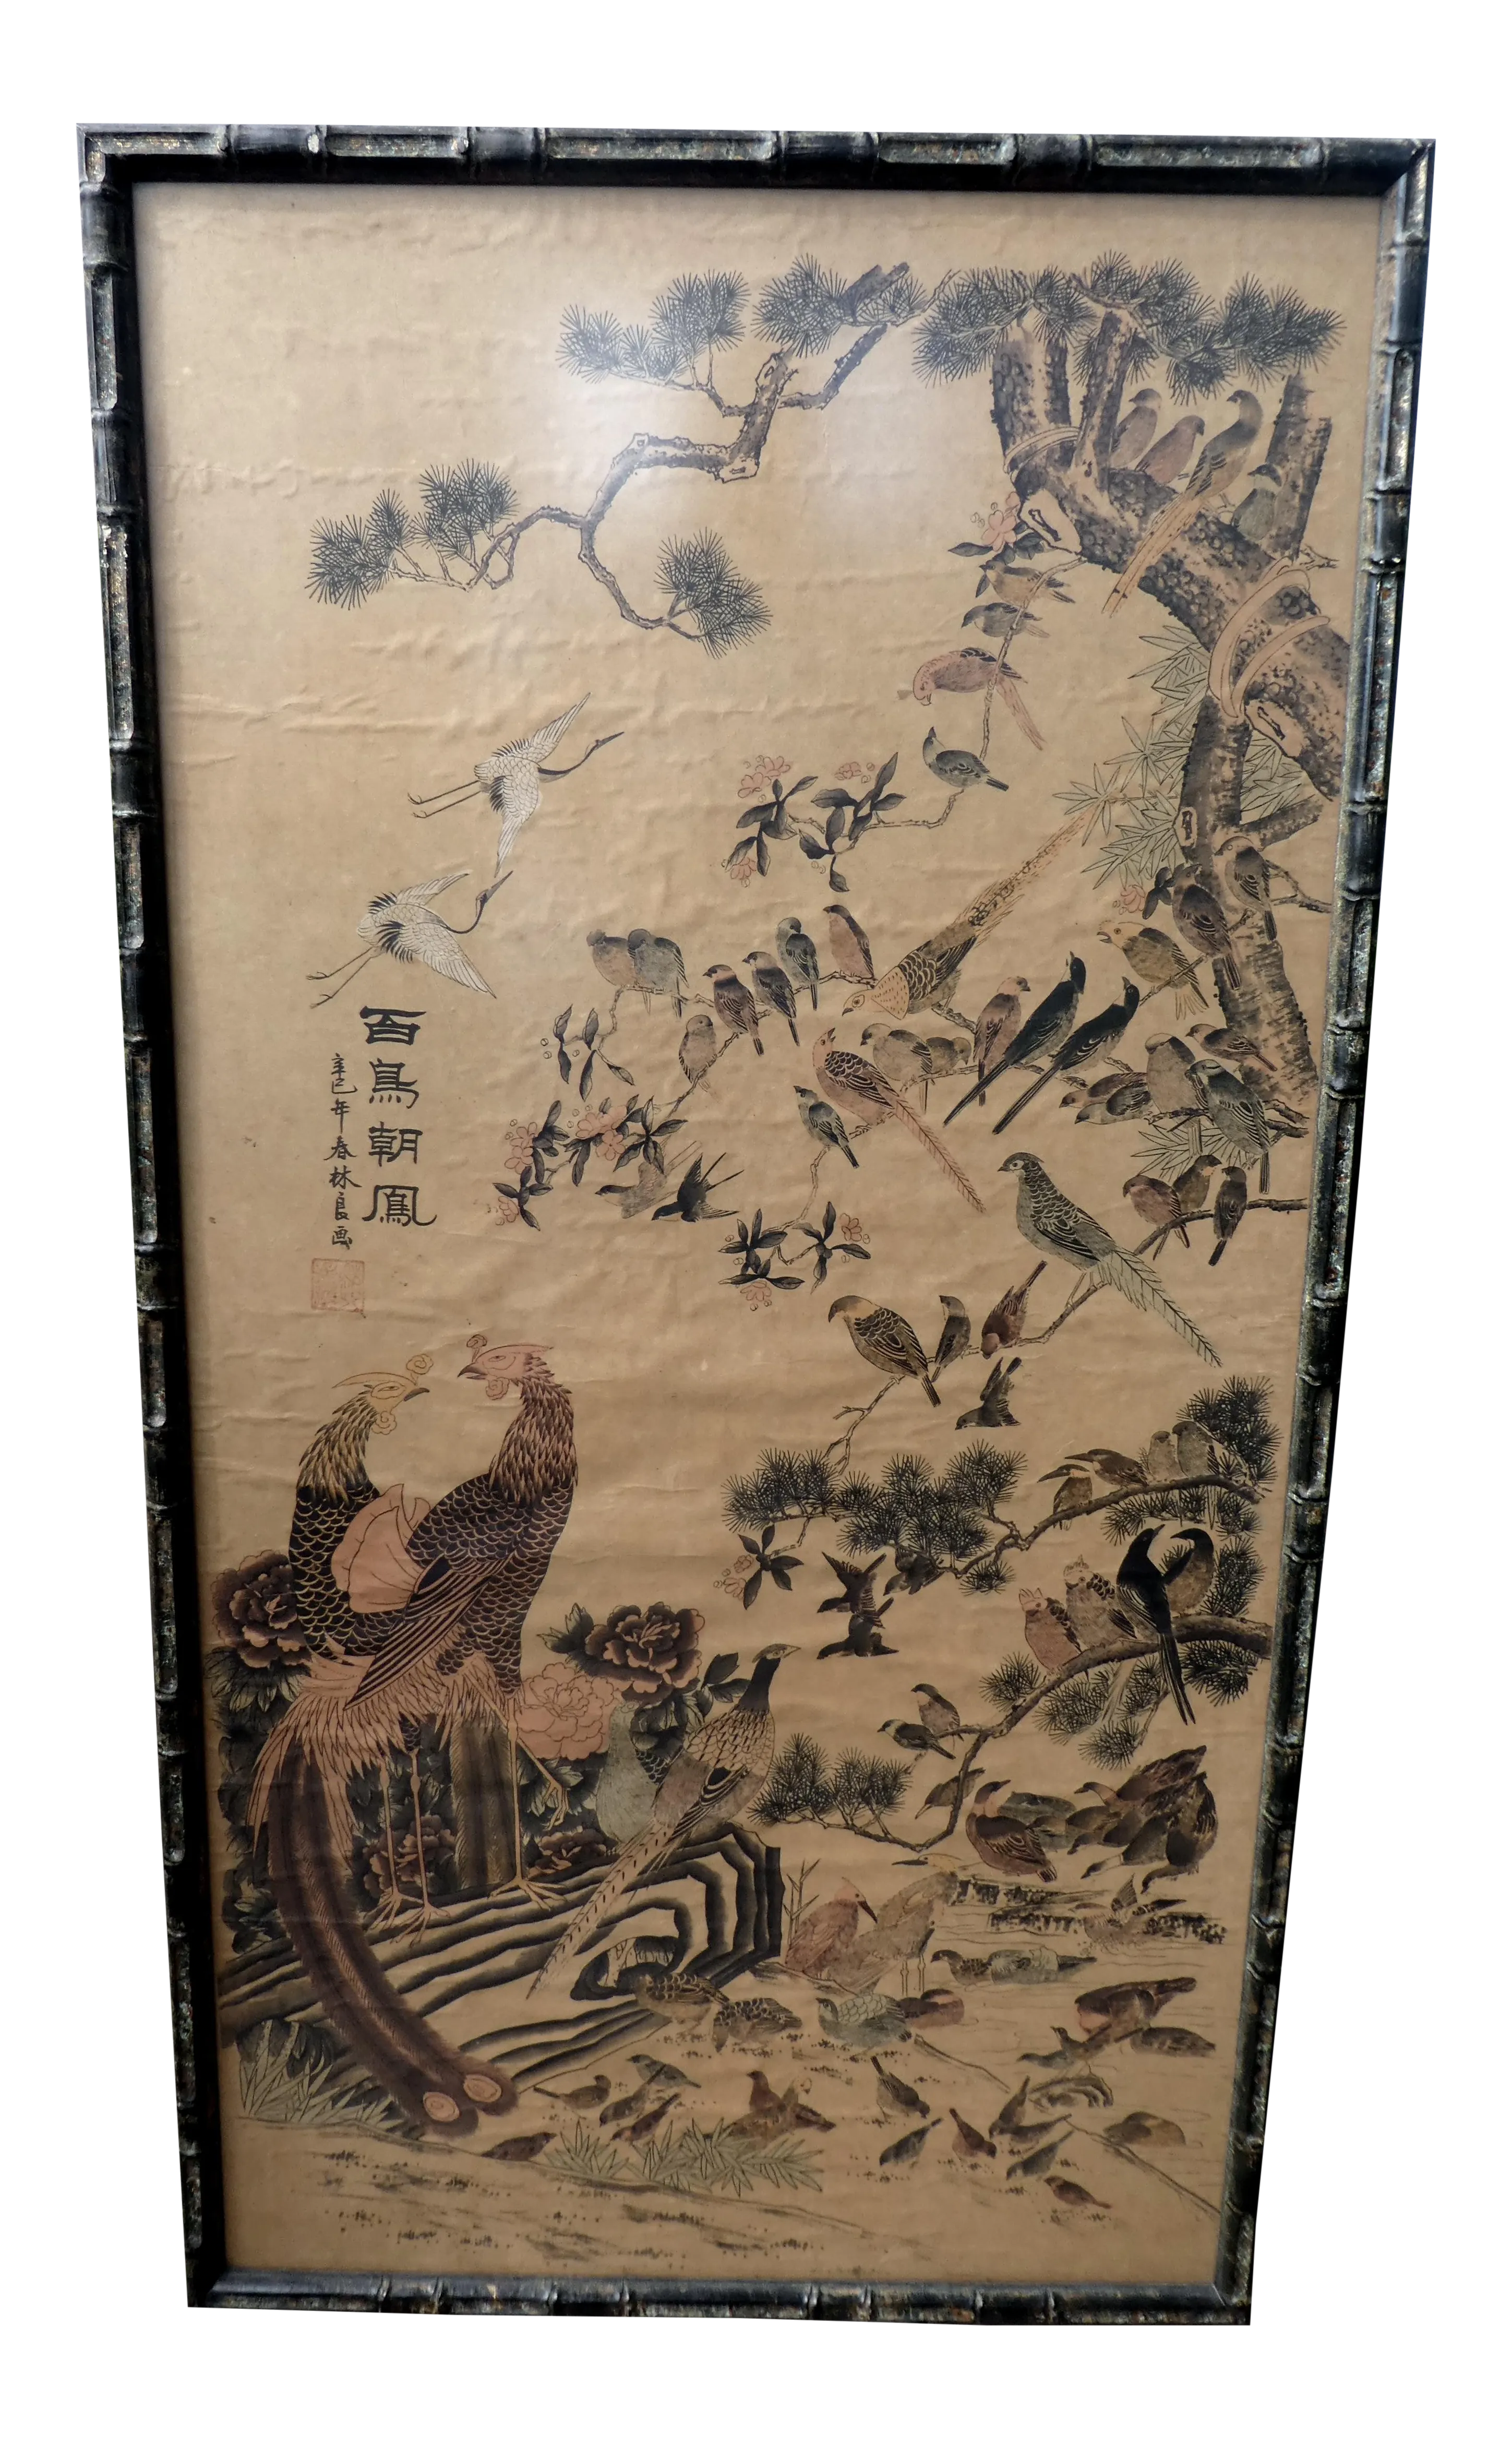 百鳥朝鳳
辛巳年春林良画